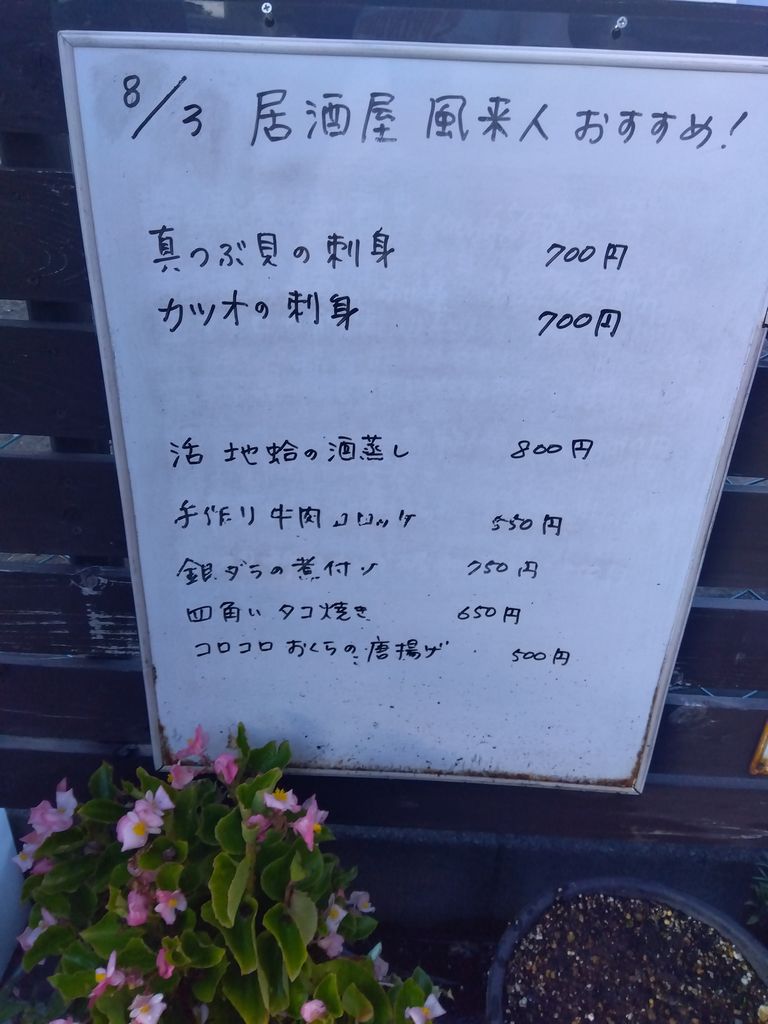 8/3 居酒屋 風来人 おすすめ!
真つぶ貝の刺身 700円
カツオの刺身 700円
活 地蛤の酒蒸し 800円
手作り牛肉コロッケ 550円
銀ダラの煮付け 750円
四角い タコ焼き 650円
コロコロ おくらの唐揚げ 500円